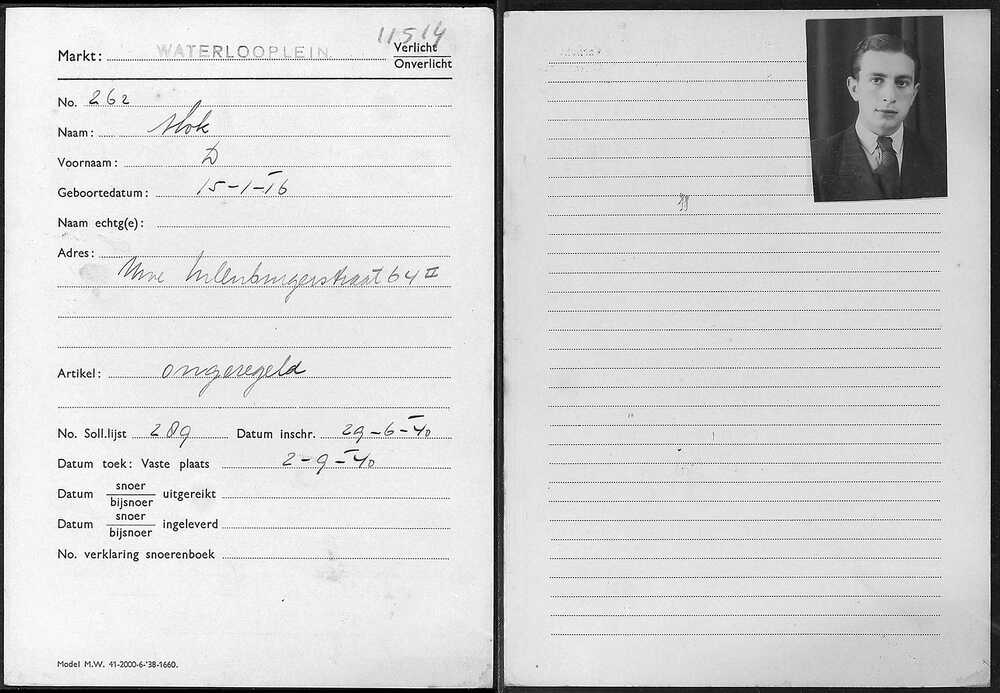 11514
Markt: WATERLOOPLEIN Verlicht
Onverlicht
No. 262
Naam:
Voornaam: D
Geboortedatum: 15-1-16
Naam echtg(e):
Adres:
Uilenburgerstraat 64 II
Artikel: ongeregeld
No. Soll.lijst 289 Datum inschr. 29-6-40
Datum toek: Vaste plaats 2-9-40
Datum snoer
bijsnoer uitgereikt
Datum snoer
bijsnoer ingeleverd
No. verklaring snoerenboek
Model M.W. 41-2000-6-'38-1660.